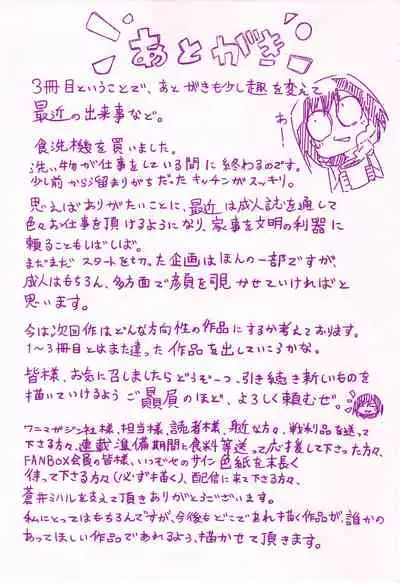 あとがき
3冊目ということで、あとがきも少し趣を変えて
最近の出来事など。
わ
食洗機を買いました。
洗い物が仕事をしている間に終わるのです。
少し前から溜まりがちだったキッチンがスッキリ。
思えばありがたいことに、最近は成人誌を通して
色々お仕事を頂けるようになり、家事を文明の利器に
頼ることもしばしば。
まだまだスタートを切った企画はほんの一部ですが、
成人はもちろん、多方面で顔を覗かせていければと
思います。
今は次回作はどんな方向性の作品にするか考えております。
1~3冊目とはまた違った作品を出していこうかな。
皆様、お気に召しましたらどうぞ一つ、引き続き新しいものを
描いていけるようご贔屓のほど、よろしく頼むぜ。
ワニマガジン社様、担当様、読者様、身近な方々、戦利品を送って
下さる方々、連載準備期間に食料等送って応援して下さった方々、
FANBOX会員の皆様、いつぞやのサイン色紙を末長く
待って下さる方々(必ず描く)、配信に来て下さる方、
蒼井ミハルを支えて頂きありがとうございます。
私にとってはもちろんですが、今後もどこであれ描く作品が、誰かの
あってほしい作品であれるよう、描かせて頂きます。